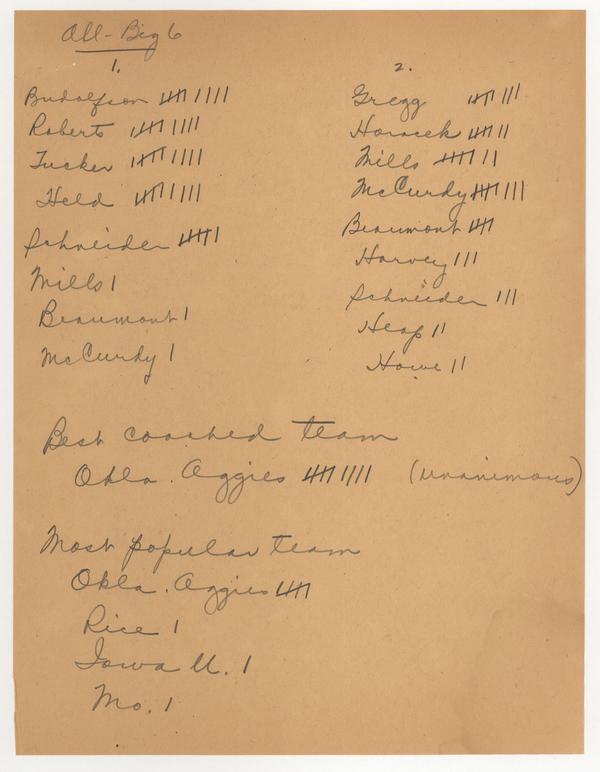 All-Big 6
1.
Budolfson 𝍸 ||||
Roberts 𝍸 ||||
Tucker 𝍸 ||||
Held 𝍸 ||||
Schneider 𝍸 |
Mills |
Beaumont |
McCurdy |
2.
Gregg 𝍸 |||
Horacek 𝍸 ||
Mills 𝍸 ||
McCurdy 𝍸 |||
Beaumont 𝍸
Harvey |||
Schneider |||
Heap ||
Howe ||
Best coached team
Okla. Aggies 𝍸 |||| (unanimous)
Most popular team
Okla. Aggies 𝍸
Rice |
Iowa U. |
Mo. |